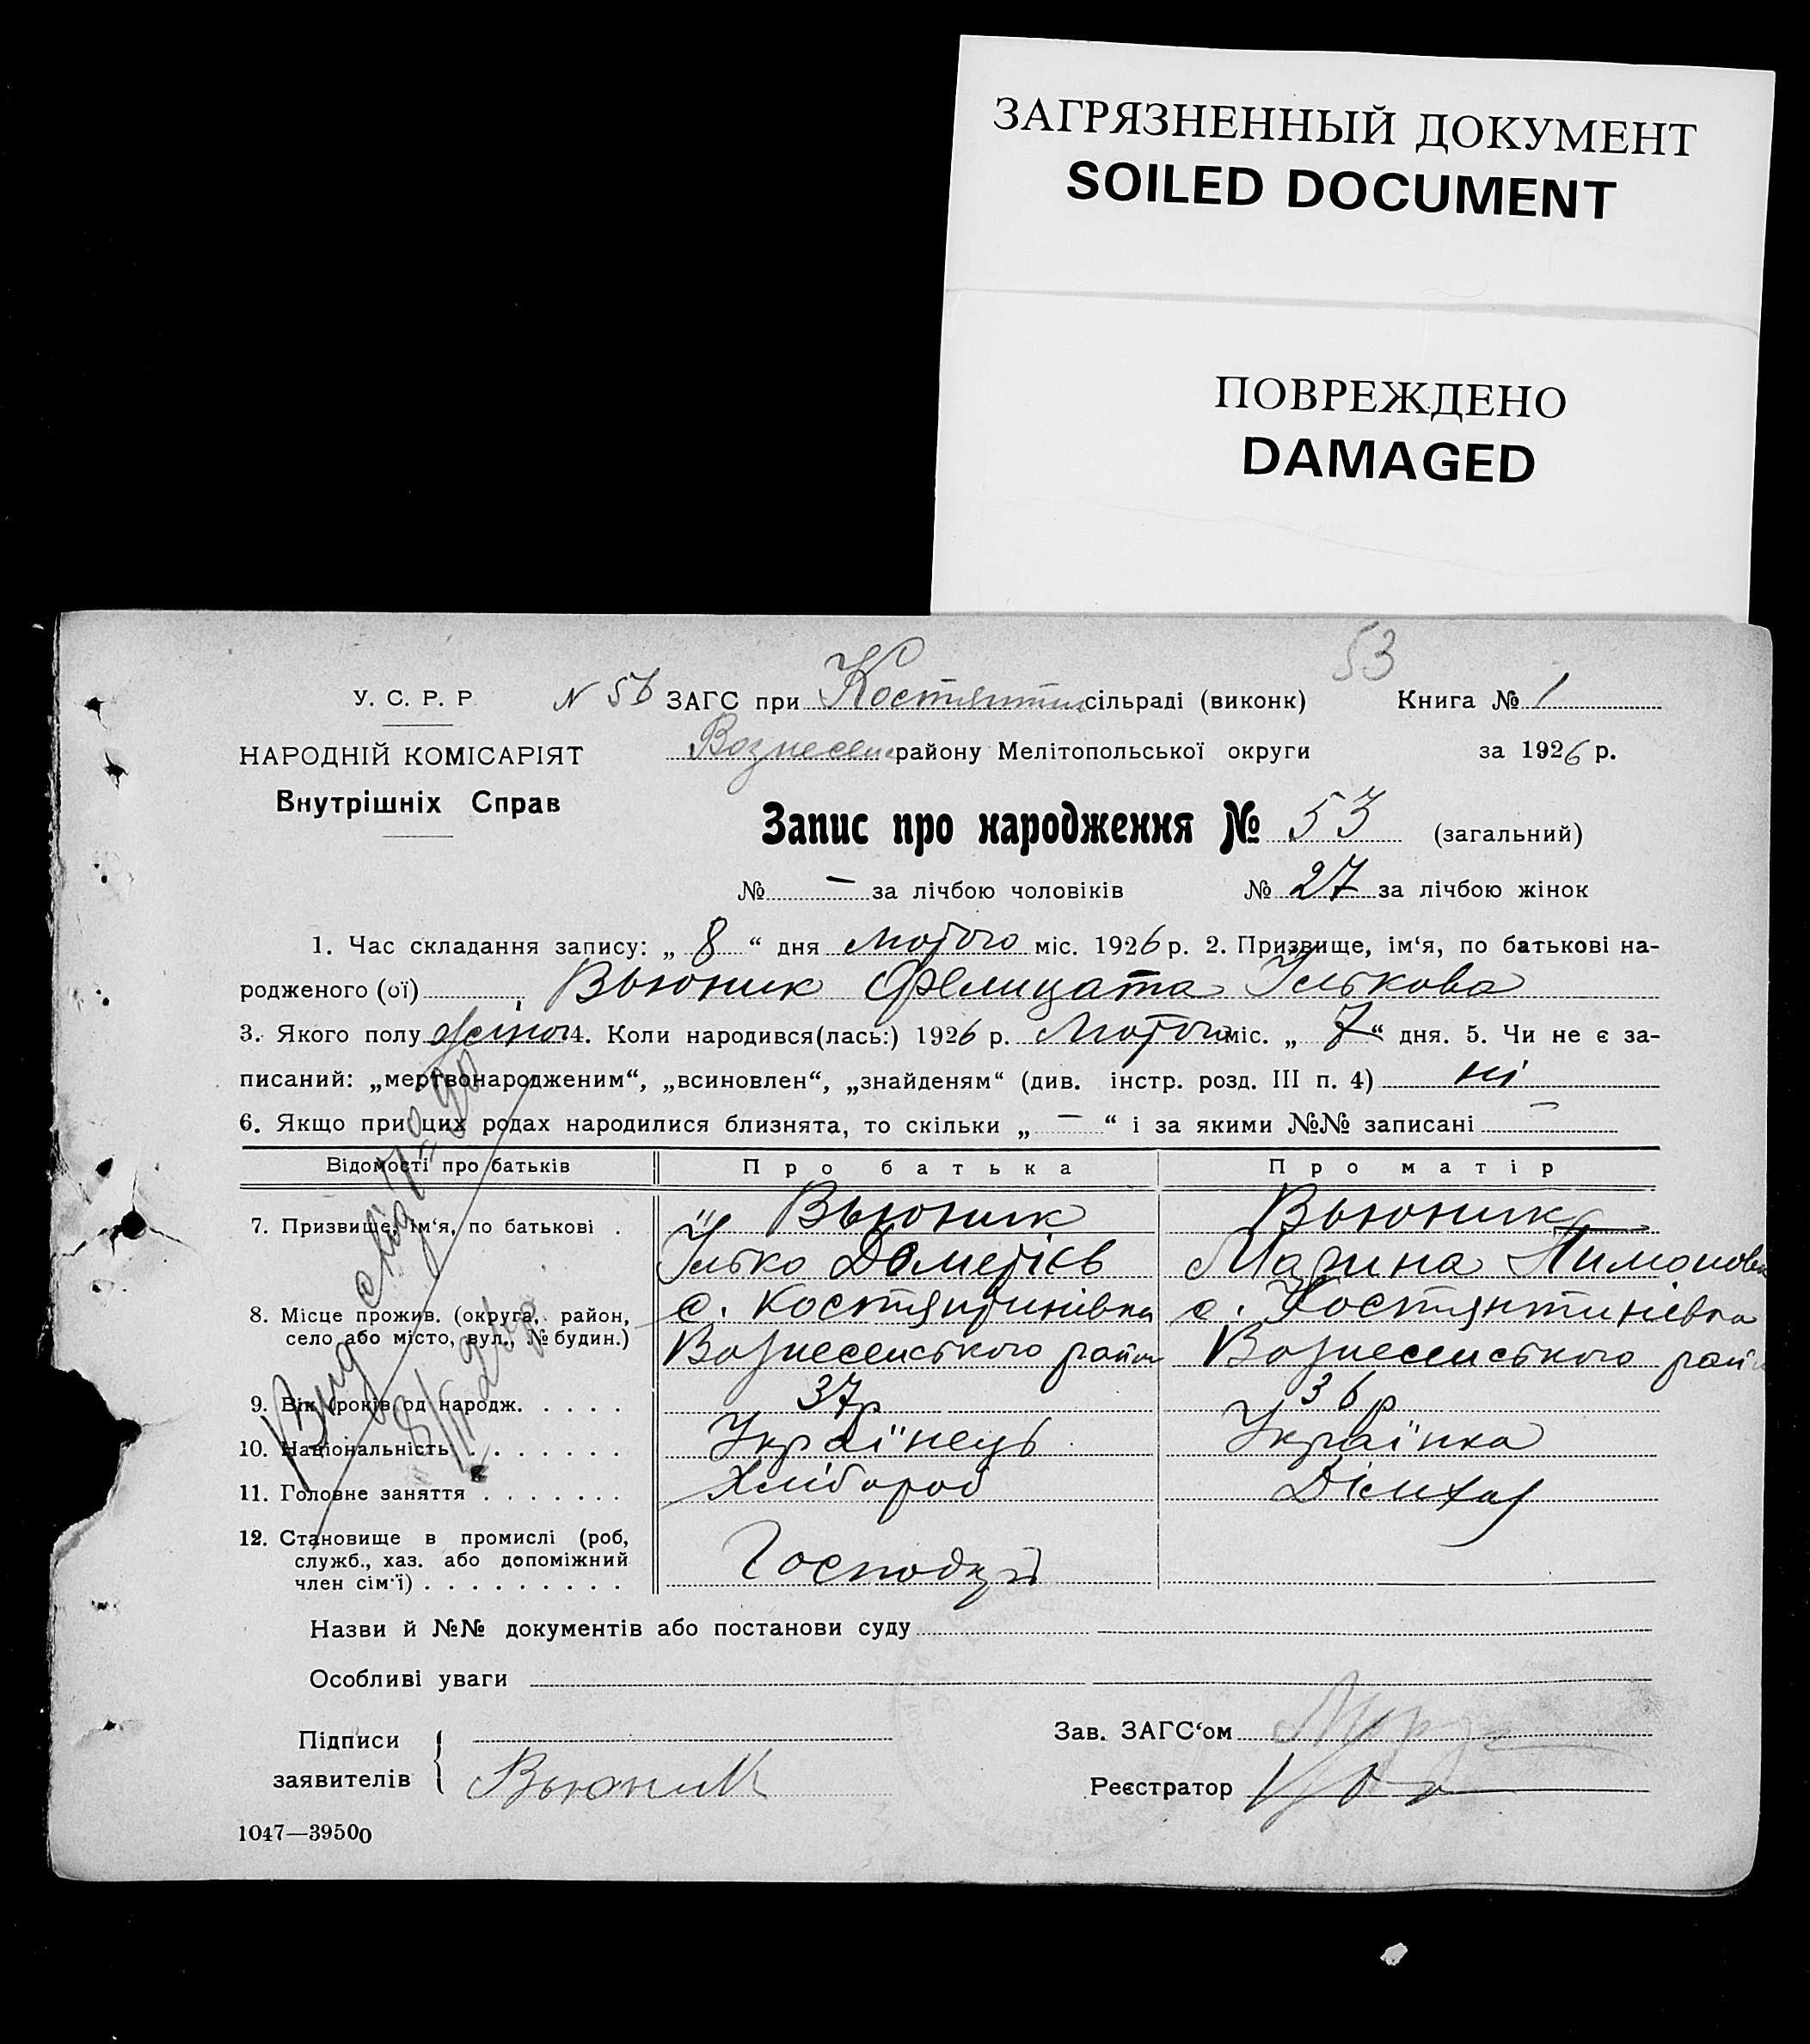 ЗАГРЯЗНЕННЫЙ ДОКУМЕНТ
SOILED DOCUMENT
ПОВРЕЖДЕНО
DAMAGED
53
У. С. Р. Р. N 56 ЗАГС при Костянтин сільраді (виконк) Книга № 1
НАРОДНІЙ КОМІСАРІЯТ Вознесен району Мелітопольської округи за 1926 р.
Внутрішніх Справ
Запис про народження № 53 (загальний)
№ — за лічбою чоловіків № 27 за лічбою жінок
1. Час складання запису: „ 8 “ дня Лютого міс. 1926 р. 2. Призвище, ім‘я, по батькові на-
родженого (ої) Вьюник Фелицата Ількова
3. Якого полу жіноч 4. Коли народився(лась:) 1926 р. Лютого міс. „ 7 “ дня. 5. Чи не є за-
писаний: „мертвонародженим“, „всиновлен“, „знайденям“ (див. інстр. розд. III п. 4) ні
6. Якщо при цих родах народилися близнята, то скільки „ — “ і за якими №№ записані —
Відомості про батьків Про батька Про матір
7. Призвище, ім‘я, по батькові . Вьюник Вьюник
Ілько Дометієв Марина
8. Місце прожив. (округа, район, с. Костянтинівка с. Костянтинівка
село або місто, вул., № будин.) Вознесенського район Вознесенського рай
9. Вік (років од народж. . . . . 37р 36р
10. Національність . . . . . . . Українець Українка
11. Головне заняття . . . . . . . Хлібороб
12. Становище в промислі (роб,
служб., хаз. або допоміжний
член сім‘ї) . . . . . . . . . Господар
Назви й №№ документів або постанови суду
Особливі уваги
Підписи Зав. ЗАГС‘ом
заявителів Вьюник Реєстратор
1047—39500